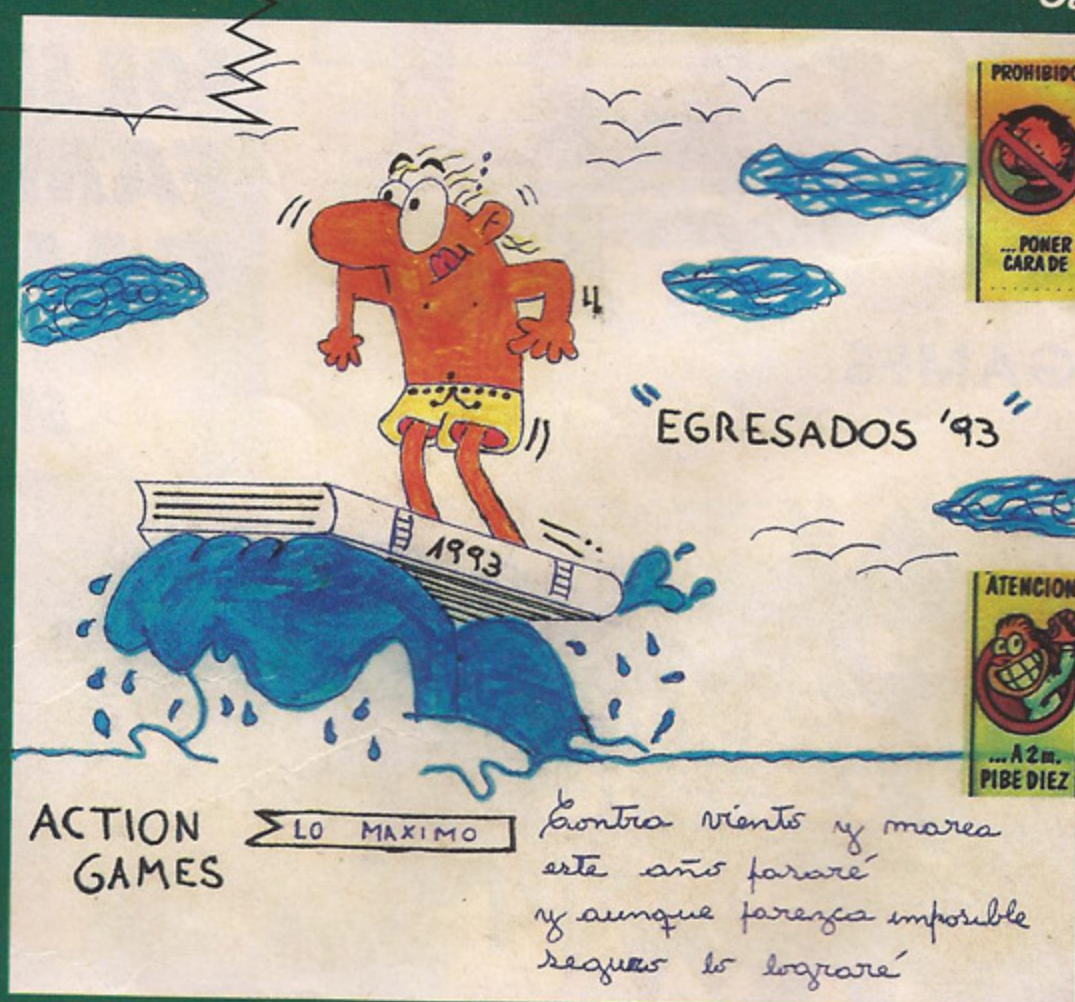 PROHIBIDO
...PONER
CARA DE
"EGRESADOS '93"
1993
ATENCION
...A 2 m.
PIBE DIEZ
ACTION
GAMES
LO MAXIMO
Contra viento y marea
este año pasaré
y aunque parezca imposible
seguro lo lograré